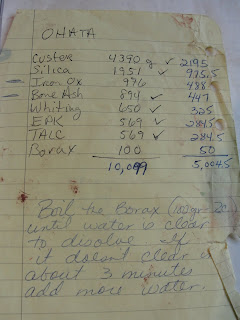 OHATA
Custer 4390 g ✓ 2195
Silica 1951 ✓ 975.5
– Iron Ox 976 488
– Bone Ash 894 ✓ 447
Whiting 650 ✓ 325
EPK 569 ✓ 284.5
TALC 569 ✓ 284.5
Borax 100 50
10,099 5,004.5
Boil the Borax (100 gr 2c)
until water is clear
to disolve. If
it doesnt clear in
about 3 minutes
add more water.